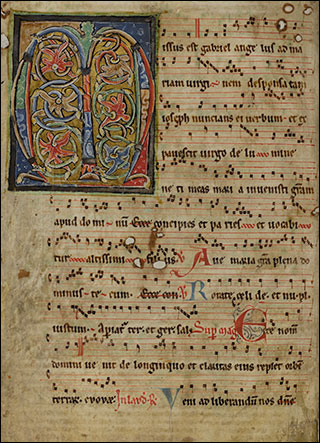 Missus est gabriel ange lus ad ma
riam virgi nem desponsatam
ioseph nuncians ei verbum et ex
pavescit virgo de lu mine
ne ti meas maria invenisti gratiam
apud do mi nu Ecce concipies et pa ries et vocabi
tur altissimi filius V Ave maria gra plena do
minus te cum Ecce con R Rorate celi de et nu pl
iustum Apiat ter et ger sal Sup mag Ecce nom
domini ve nit de longinquo et claritas eius replet orbe
terrar evovae In laud R Veni ad liberandu nos dne